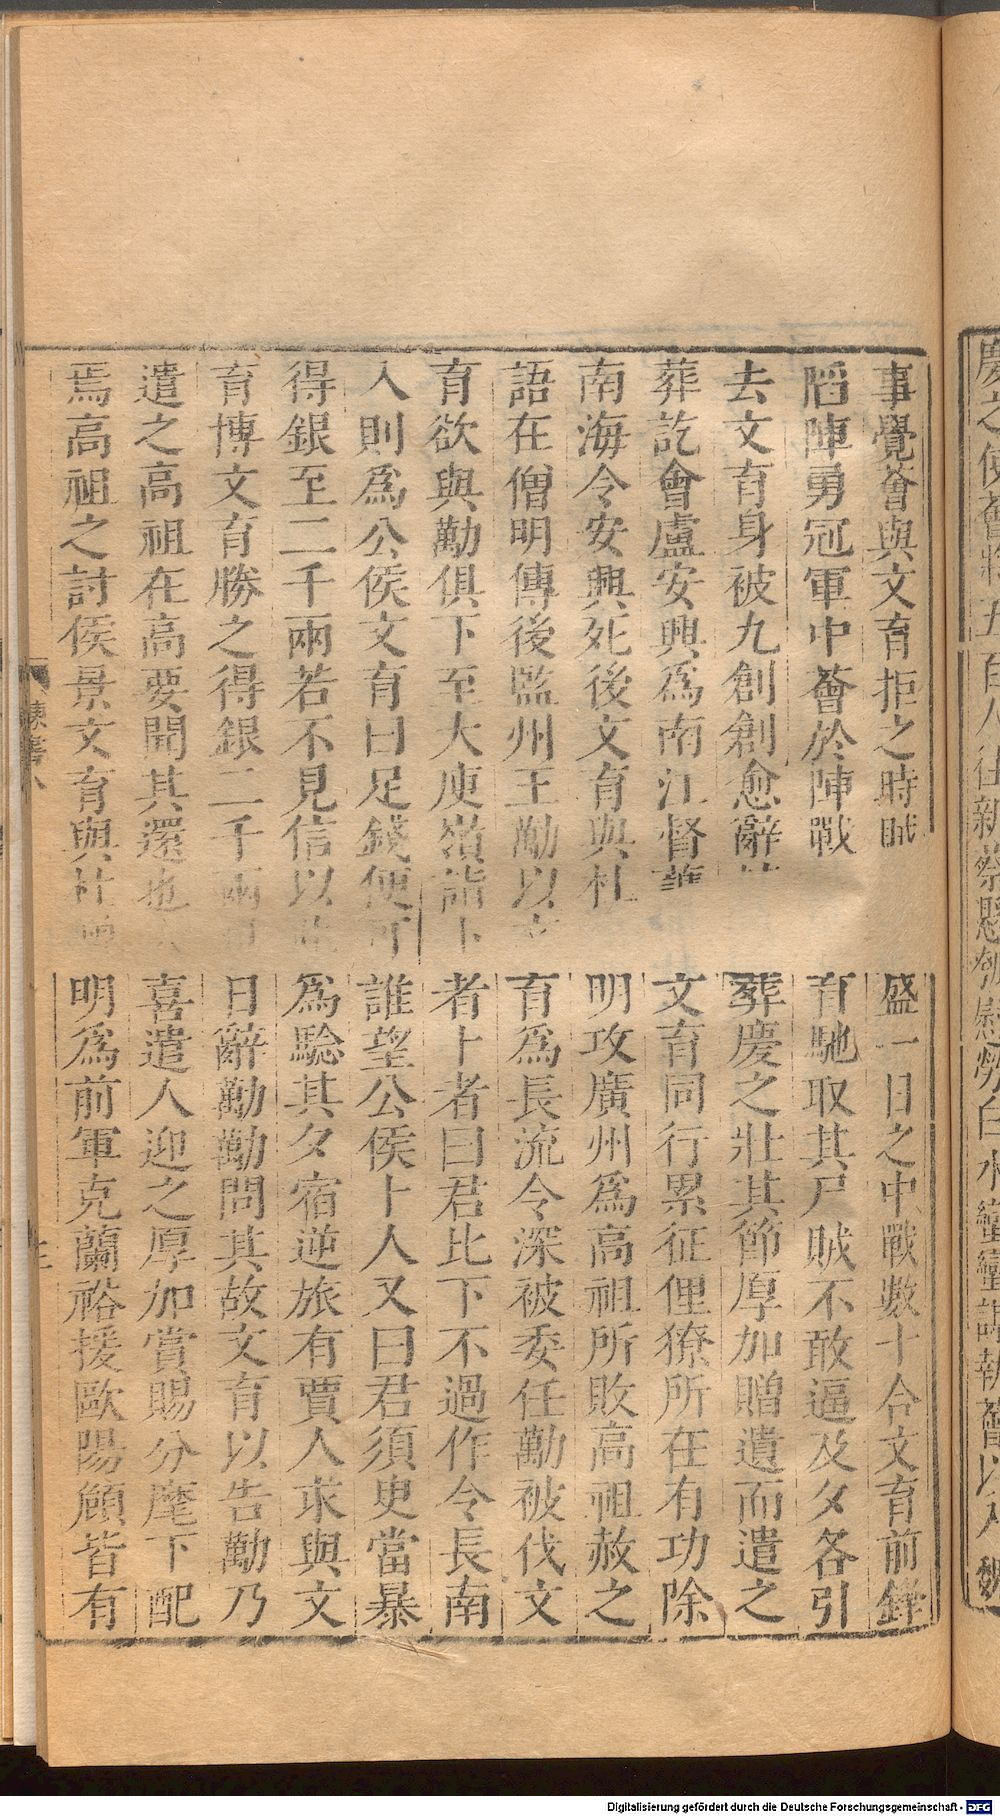 事覺薈與文育拒之時賊盛一日之中戰數十合文育前鋒
陷陣勇冠軍中薈於陣戰育馳取其尸賊不敢逼及夕各引
去文育身被九創創愈辭葬慶之壯其節厚加贈遺而遣之
葬訖會盧安興爲南江督文育同行累征俚獠所在有功除
南海令安興死後文育與杜明攻廣州爲高祖所敗高祖赦之
語在僧明傳後監州王勱以育爲長流令深被委任勱被伐文
育欲與勱俱下至大庾嶺詣卜者卜者曰君比下不過作令長南
入則爲公侯文育曰足錢便可誰望公侯卜人又曰君須臾當暴
得銀至二千兩若不見信以爲騐其夕宿逆旅有賈人求與文
育博文育勝之得銀二千兩日辭勱勱問其故文育以告勱乃
遣之高祖在高要聞其還也喜遣人迎之厚加賞賜分麾下配
焉高祖之討侯景文育與杜明爲前軍克蘭裕援歐陽頠皆有
Digitalisierung gefördert durch die Deutsche Forschungsgemeinschaft - DFG